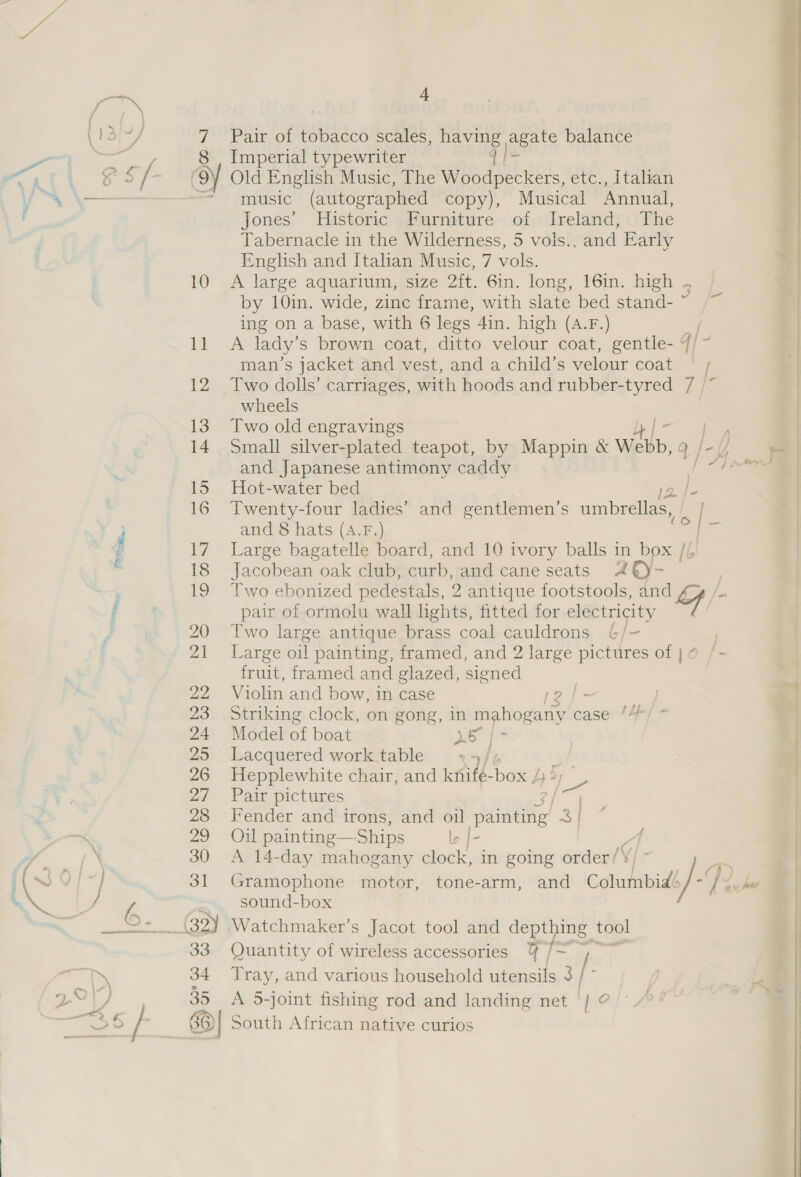 4
7 Pair of tobacco scales, having agate balance
8 Imperial typewriter 9/-
85/- (9) Old English Music, The Woodpeckers, etc., Italian
music (autographed copy), Musical Annual,
Jones’ Historic Furniture of Ireland, The
Tabernacle in the Wilderness, 5 vols., and Early
English and Italian Music, 7 vols.
10 A large aquarium, size 2ft. 6in. long, 16in. high
by 10in. wide, zinc frame, with slate bed stand-
ing on a base, with 6 legs 4in. high (A.F.)
11 A lady’s brown coat, ditto velour coat, gentle-
man’s jacket and vest, and a child’s velour coat
12 Two dolls’ carriages, with hoods and rubber-tyred 7/-
wheels
13 Two old engravings 4/-
14 Small silver-plated teapot, by Mappin & Webb, 9/-
and Japanese antimony caddy
15 Hot-water bed 12/-
16 Twenty-four ladies’ and gentlemen’s umbrellas,
and 8 hats (A.F.)
17 Large bagatelle board, and 10 ivory balls in box
18 Jacobean oak club, curb, and cane seats
19 Two ebonized pedestals, 2 antique footstools, and
pair of ormolu wall lights, fitted for electricity
20 Two large antique brass coal cauldrons 6/-
21 Large oil painting, framed, and 2 large pictures of 10/-
fruit, framed and glazed, signed
22 Violin and bow, in case 12/-
23 Striking clock, on gong, in mahogany case 14/-
24 Model of boat 25/-
25 Lacquered work table
26 Hepplewhite chair, and knife-box
27 Pair pictures
28 Fender and irons, and oil painting 3/
29 Oil painting—Ships 6/-
30 A 14-day mahogany clock, in going order
(30/-) 31 Gramophone motor, tone-arm, and Columbia
sound-box
6- (32) Watchmaker’s Jacot tool and depthing tool
33 Quantity of wireless accessories 4/-
34 Tray, and various household utensils 3/-
35 A 5-joint fishing rod and landing net 10/-
35/- (36) South African native curios